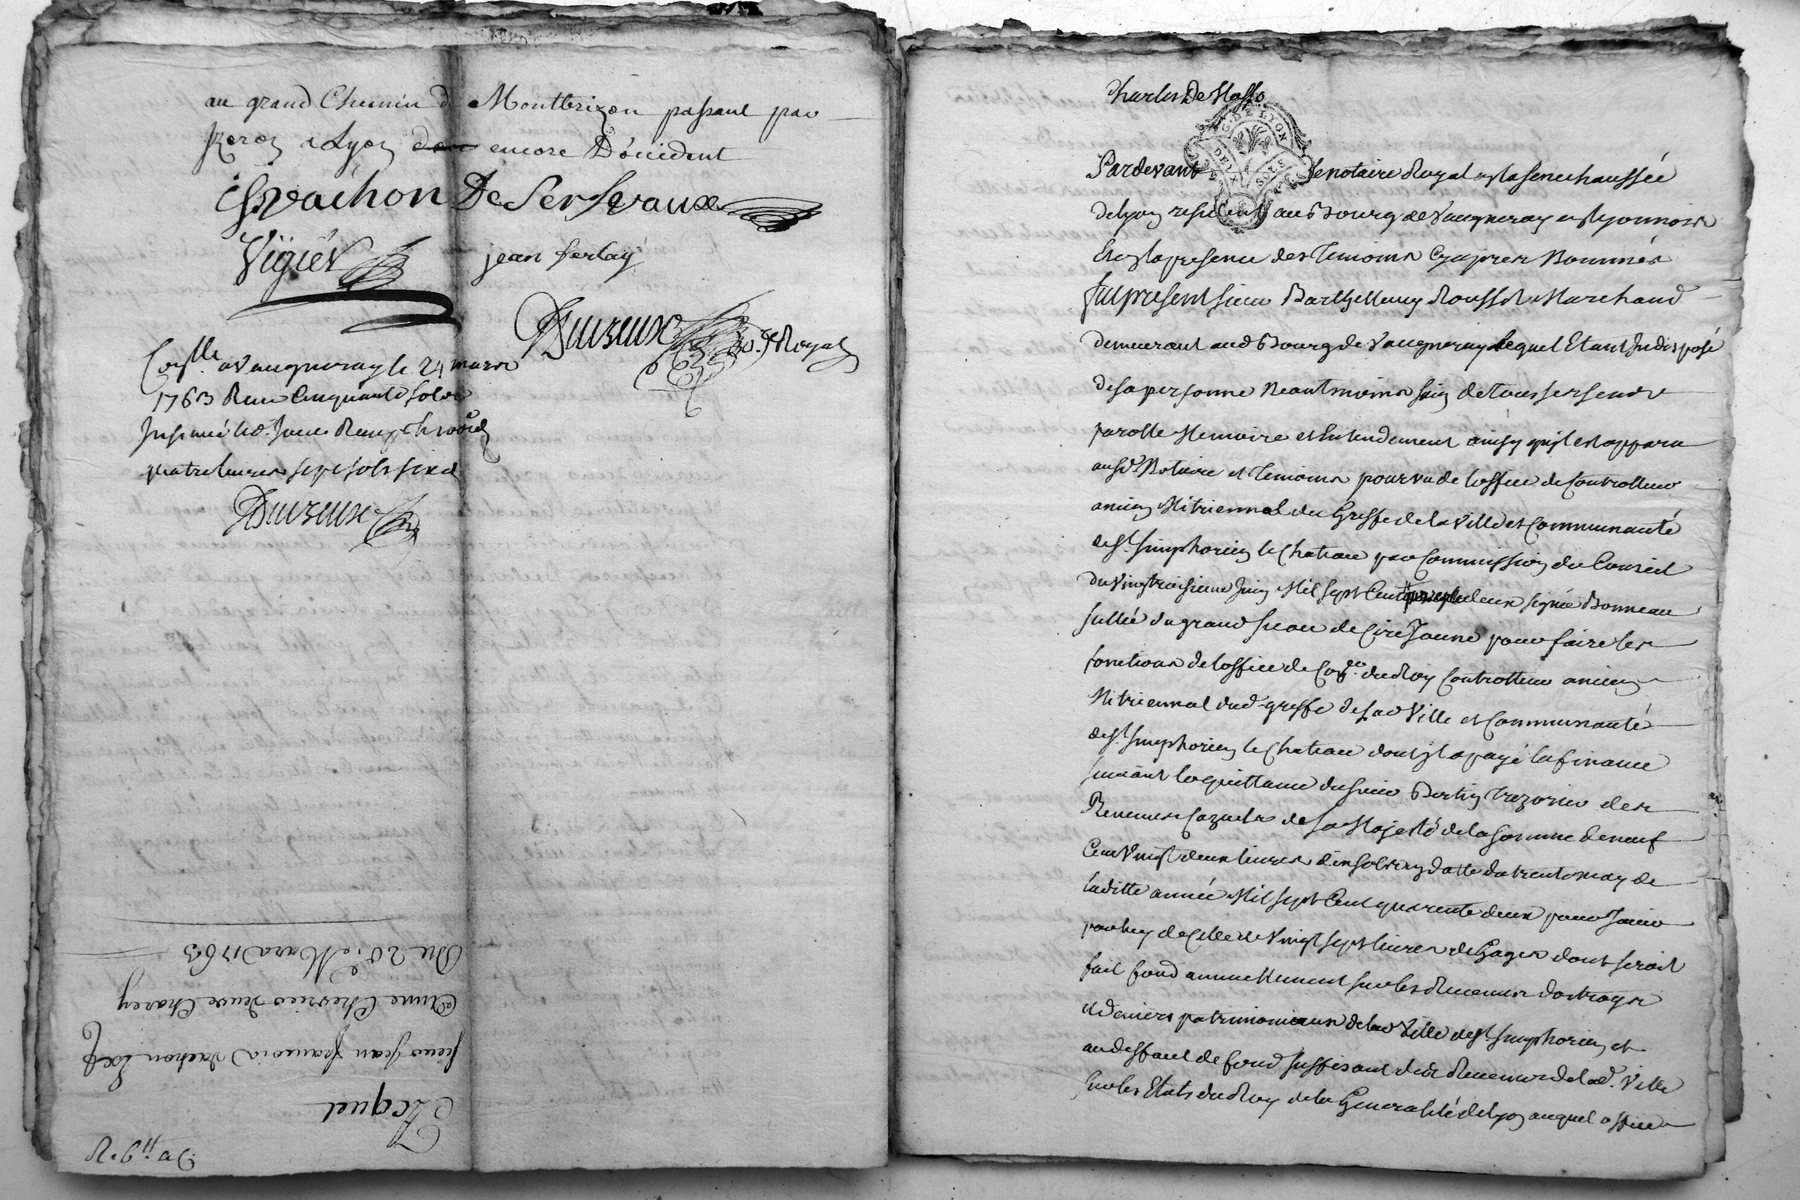 au grand Chemin de Montbrizon passant par
jzeron a Lyon encore D'occident
Vachon De Serfevaux
Viguer jean ferlay
Duvzeux no.re Royal
Con.lle a Vaugneray le 24 mars
1763 Reçu Cinquante sols
quatre livres sept sols six d
Duvzeux
Du 20.e Mars 1763
Anne Chevrier veuve Charey
sieur jean francois Vachon
Acquet
Charles De
G. DE LYON
DEUX SOLS
Pardevant le notaire Royal en la senechaussée
de lyon residant au Bourg de Vaugneray en lyonnois
Et en la presence des temoins cy apres Nommés
fut present sieur Barthellemy Rousset Marchand
demeurant aud Bourg de Vaugneray lequel Etant Indisposé
de sa personne Neantmoins sain de tous ses sens
parolle Memoire et Entendement ainsy quil est apparu
ausd. Notaire et temoins pourvu de l'office de Controlleur
ancien Mitriennal du Greffe de la Ville et Communauté
de St. Simphorien le Chateau par Commission du Conseil
du Vingt troisieme Juin Mil Sept Cent deux signée Bonneau
sellée du grand sceau de Cire Jaune pour faire les
fonctions de l'office de Con.er du Roy Controlleur ancien
Mitriennal dud. greffe de la Ville et Communauté
de St. Simphorien le Chateau dont il a payé la finance
suivant la quittance du sieur Bertin trezorier des
Revenus Cazuels de Sa Majesté de la somme de neuf
Cent Vingt deux livres dix sols en datte du trente may de
laditte année Mil sept Cent quarente deux pour Jouir
par luy de Celle de Vingt sept livres de Gages dont seroit
fait fond annuellement sur les Revenus d'octroys
et deniers patrimoniaux de la Ville de St. Simphorien et
au deffaut de fond suffisant desd. Revenus de lad. Ville
sur les Etats du Roy de la Generalité de lyon auquel office